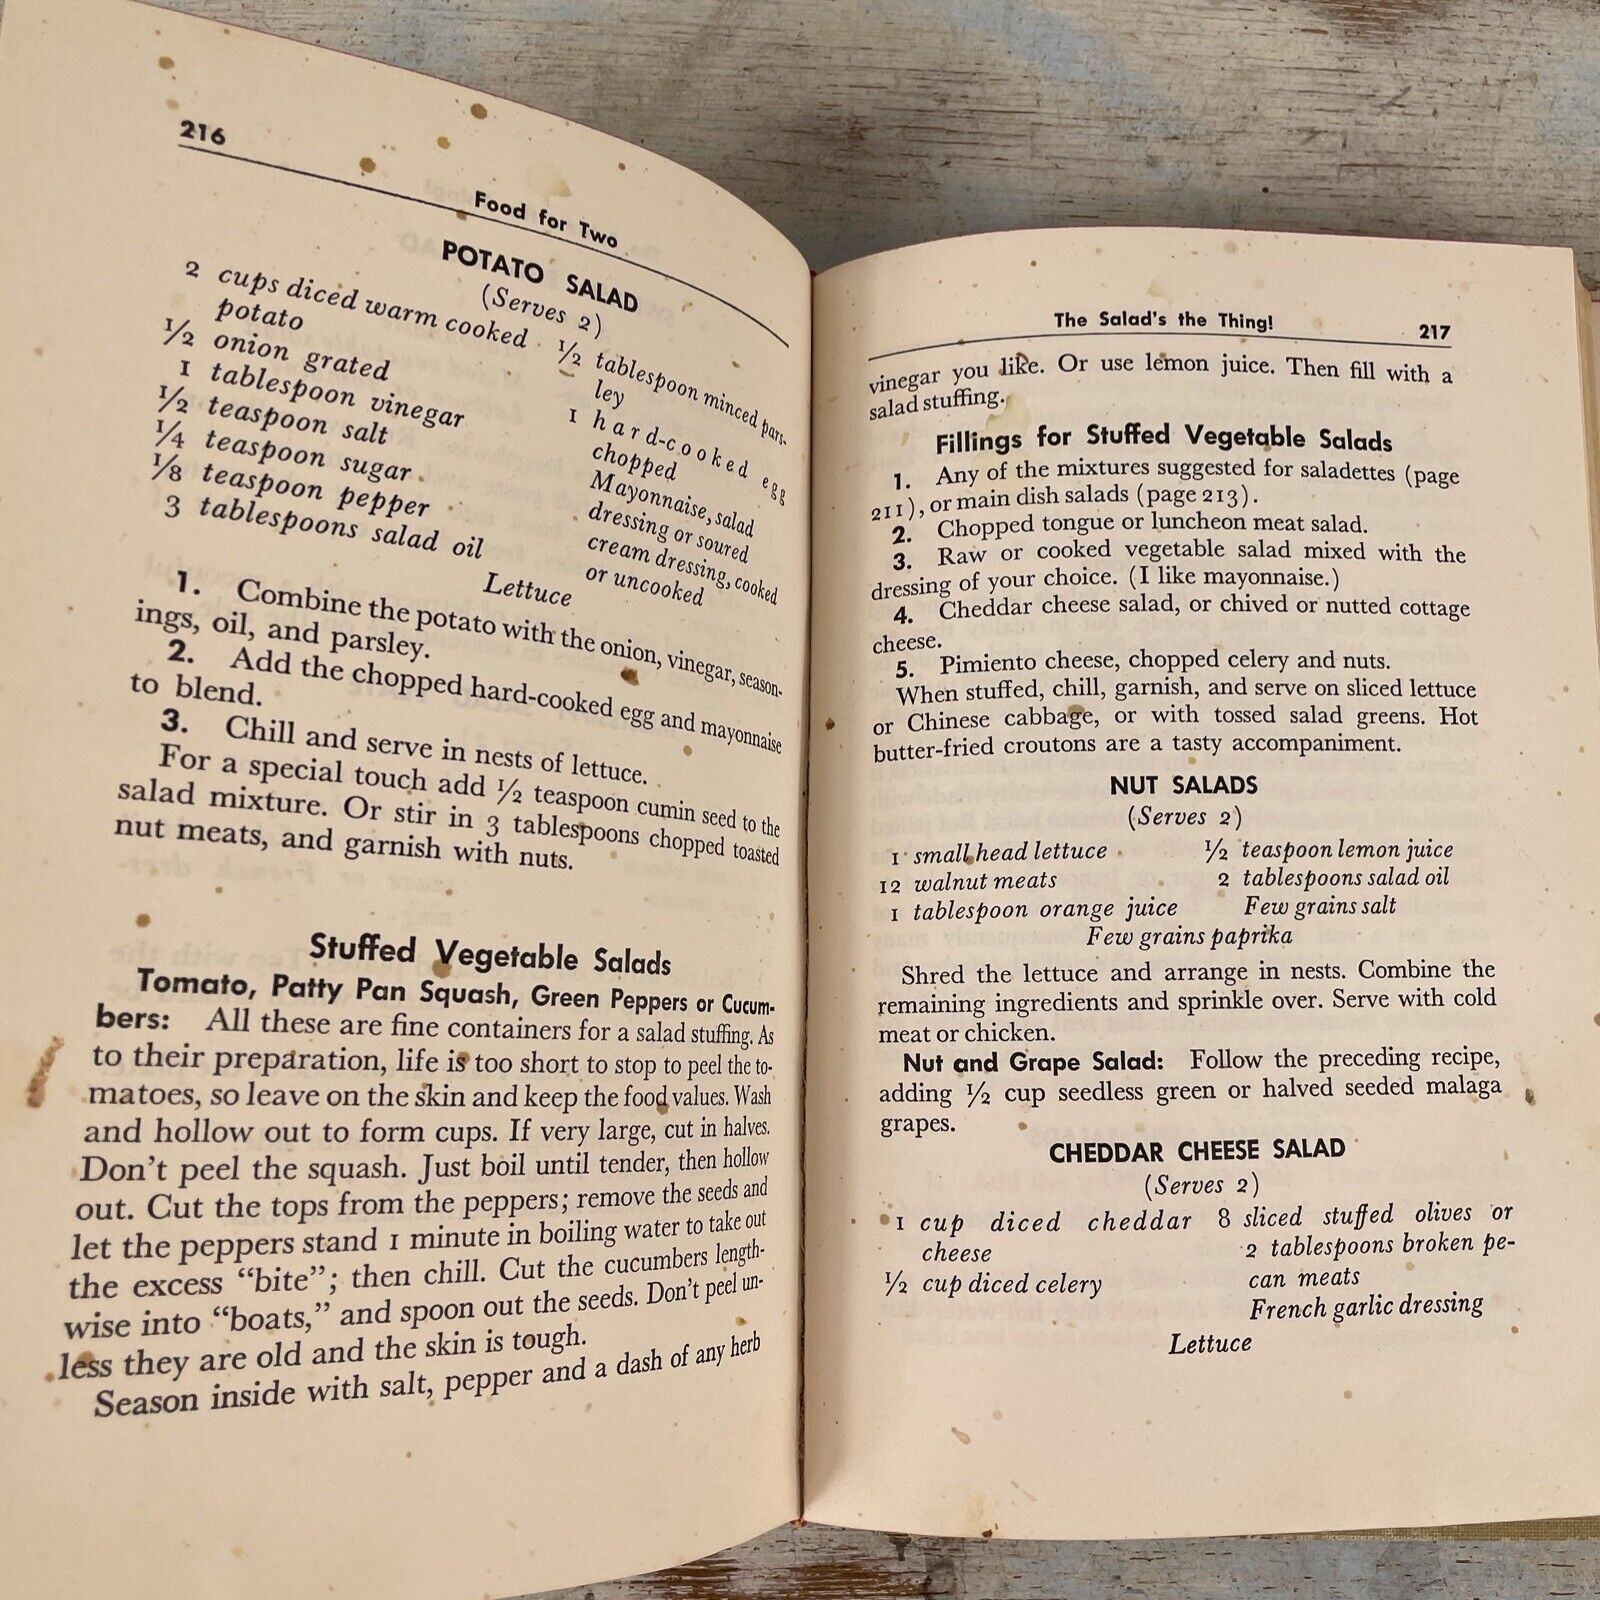 216
Food for Two
POTATO SALAD
(Serves 2)
2 cups diced warm cooked
potato
1/2 onion grated
1 tablespoon vinegar
1/2 teaspoon salt
1/4 teaspoon sugar
1/8 teaspoon pepper
3 tablespoons salad oil
1/2 tablespoon minced pars-
ley
1 hard-cooked egg
chopped
Mayonnaise, salad
dressing or soured
cream dressing, cooked
or uncooked
Lettuce
1. Combine the potato with the onion, vinegar, season-
ings, oil, and parsley.
2. Add the chopped hard-cooked egg and mayonnaise
to blend.
3. Chill and serve in nests of lettuce.
For a special touch add 1/2 teaspoon cumin seed to the
salad mixture. Or stir in 3 tablespoons chopped toasted
nut meats, and garnish with nuts.
Stuffed Vegetable Salads
Tomato, Patty Pan Squash, Green Peppers or Cucum-
bers: All these are fine containers for a salad stuffing. As
to their preparation, life is too short to stop to peel the to-
matoes, so leave on the skin and keep the food values. Wash
and hollow out to form cups. If very large, cut in halves.
Don't peel the squash. Just boil until tender, then hollow
out. Cut the tops from the peppers; remove the seeds and
let the peppers stand 1 minute in boiling water to take out
the excess "bite"; then chill. Cut the cucumbers length-
wise into "boats," and spoon out the seeds. Don't peel un-
less they are old and the skin is tough.
Season inside with salt, pepper and a dash of any herb
The Salad's the Thing!
217
vinegar you like. Or use lemon juice. Then fill with a
salad stuffing.
Fillings for Stuffed Vegetable Salads
1. Any of the mixtures suggested for saladettes (page
211), or main dish salads (page 213).
2. Chopped tongue or luncheon meat salad.
3. Raw or cooked vegetable salad mixed with the
dressing of your choice. (I like mayonnaise.)
4. Cheddar cheese salad, or chived or nutted cottage
cheese.
5. Pimiento cheese, chopped celery and nuts.
When stuffed, chill, garnish, and serve on sliced lettuce
or Chinese cabbage, or with tossed salad greens. Hot
butter-fried croutons are a tasty accompaniment.
NUT SALADS
(Serves 2)
1 small head lettuce
12 walnut meats
1 tablespoon orange juice
1/2 teaspoon lemon juice
2 tablespoons salad oil
Few grains salt
Few grains paprika
Shred the lettuce and arrange in nests. Combine the
remaining ingredients and sprinkle over. Serve with cold
meat or chicken.
Nut and Grape Salad: Follow the preceding recipe,
adding 1/2 cup seedless green or halved seeded malaga
grapes.
CHEDDAR CHEESE SALAD
(Serves 2)
1 cup diced cheddar
cheese
1/2 cup diced celery
8 sliced stuffed olives or
2 tablespoons broken pe-
can meats
French garlic dressing
Lettuce